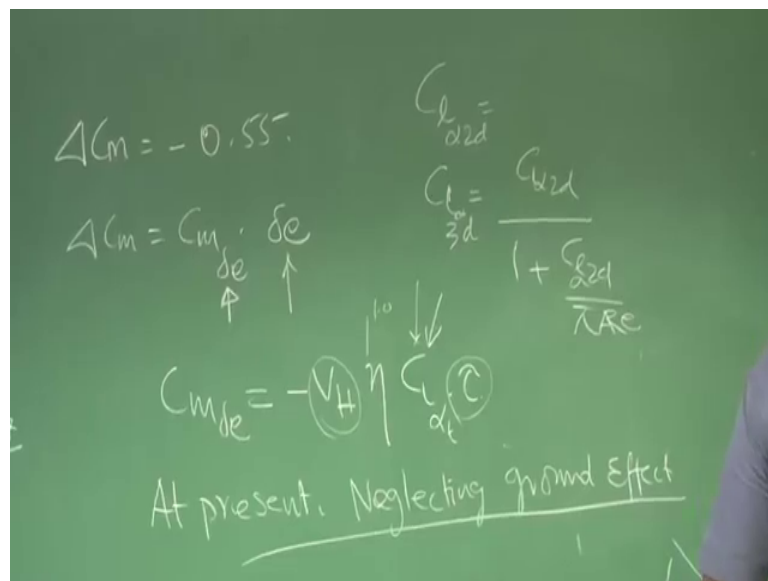 ΔCm = - 0.55.
ΔCm = Cm_δe · δe
C_l_α2d =
C_l_α3d = C_lα2d / (1 + C_lα2d / πARe)
1.0
Cm_δe = - V_H η C_l_αt τ
At present, Neglecting ground Effect